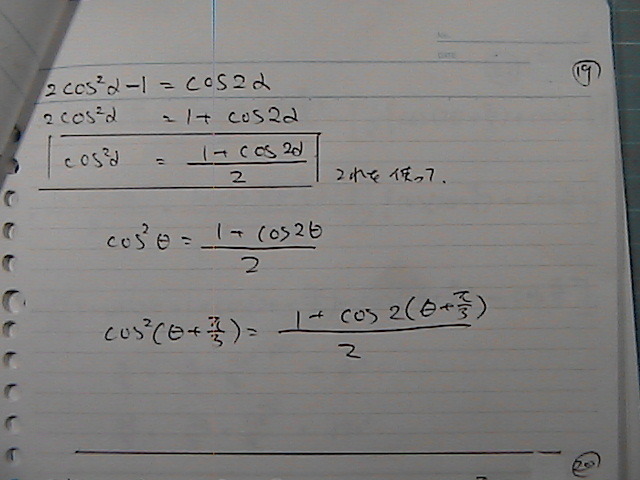 No.
Date
⑲
2cos²α-1 = cos2α
2cos²α = 1+ cos2α
cos²α = (1+ cos2α)/2 これを使って.
cos²θ = (1+ cos2θ)/2
cos²(θ+π/3) = (1+ cos2(θ+π/3))/2
⑳